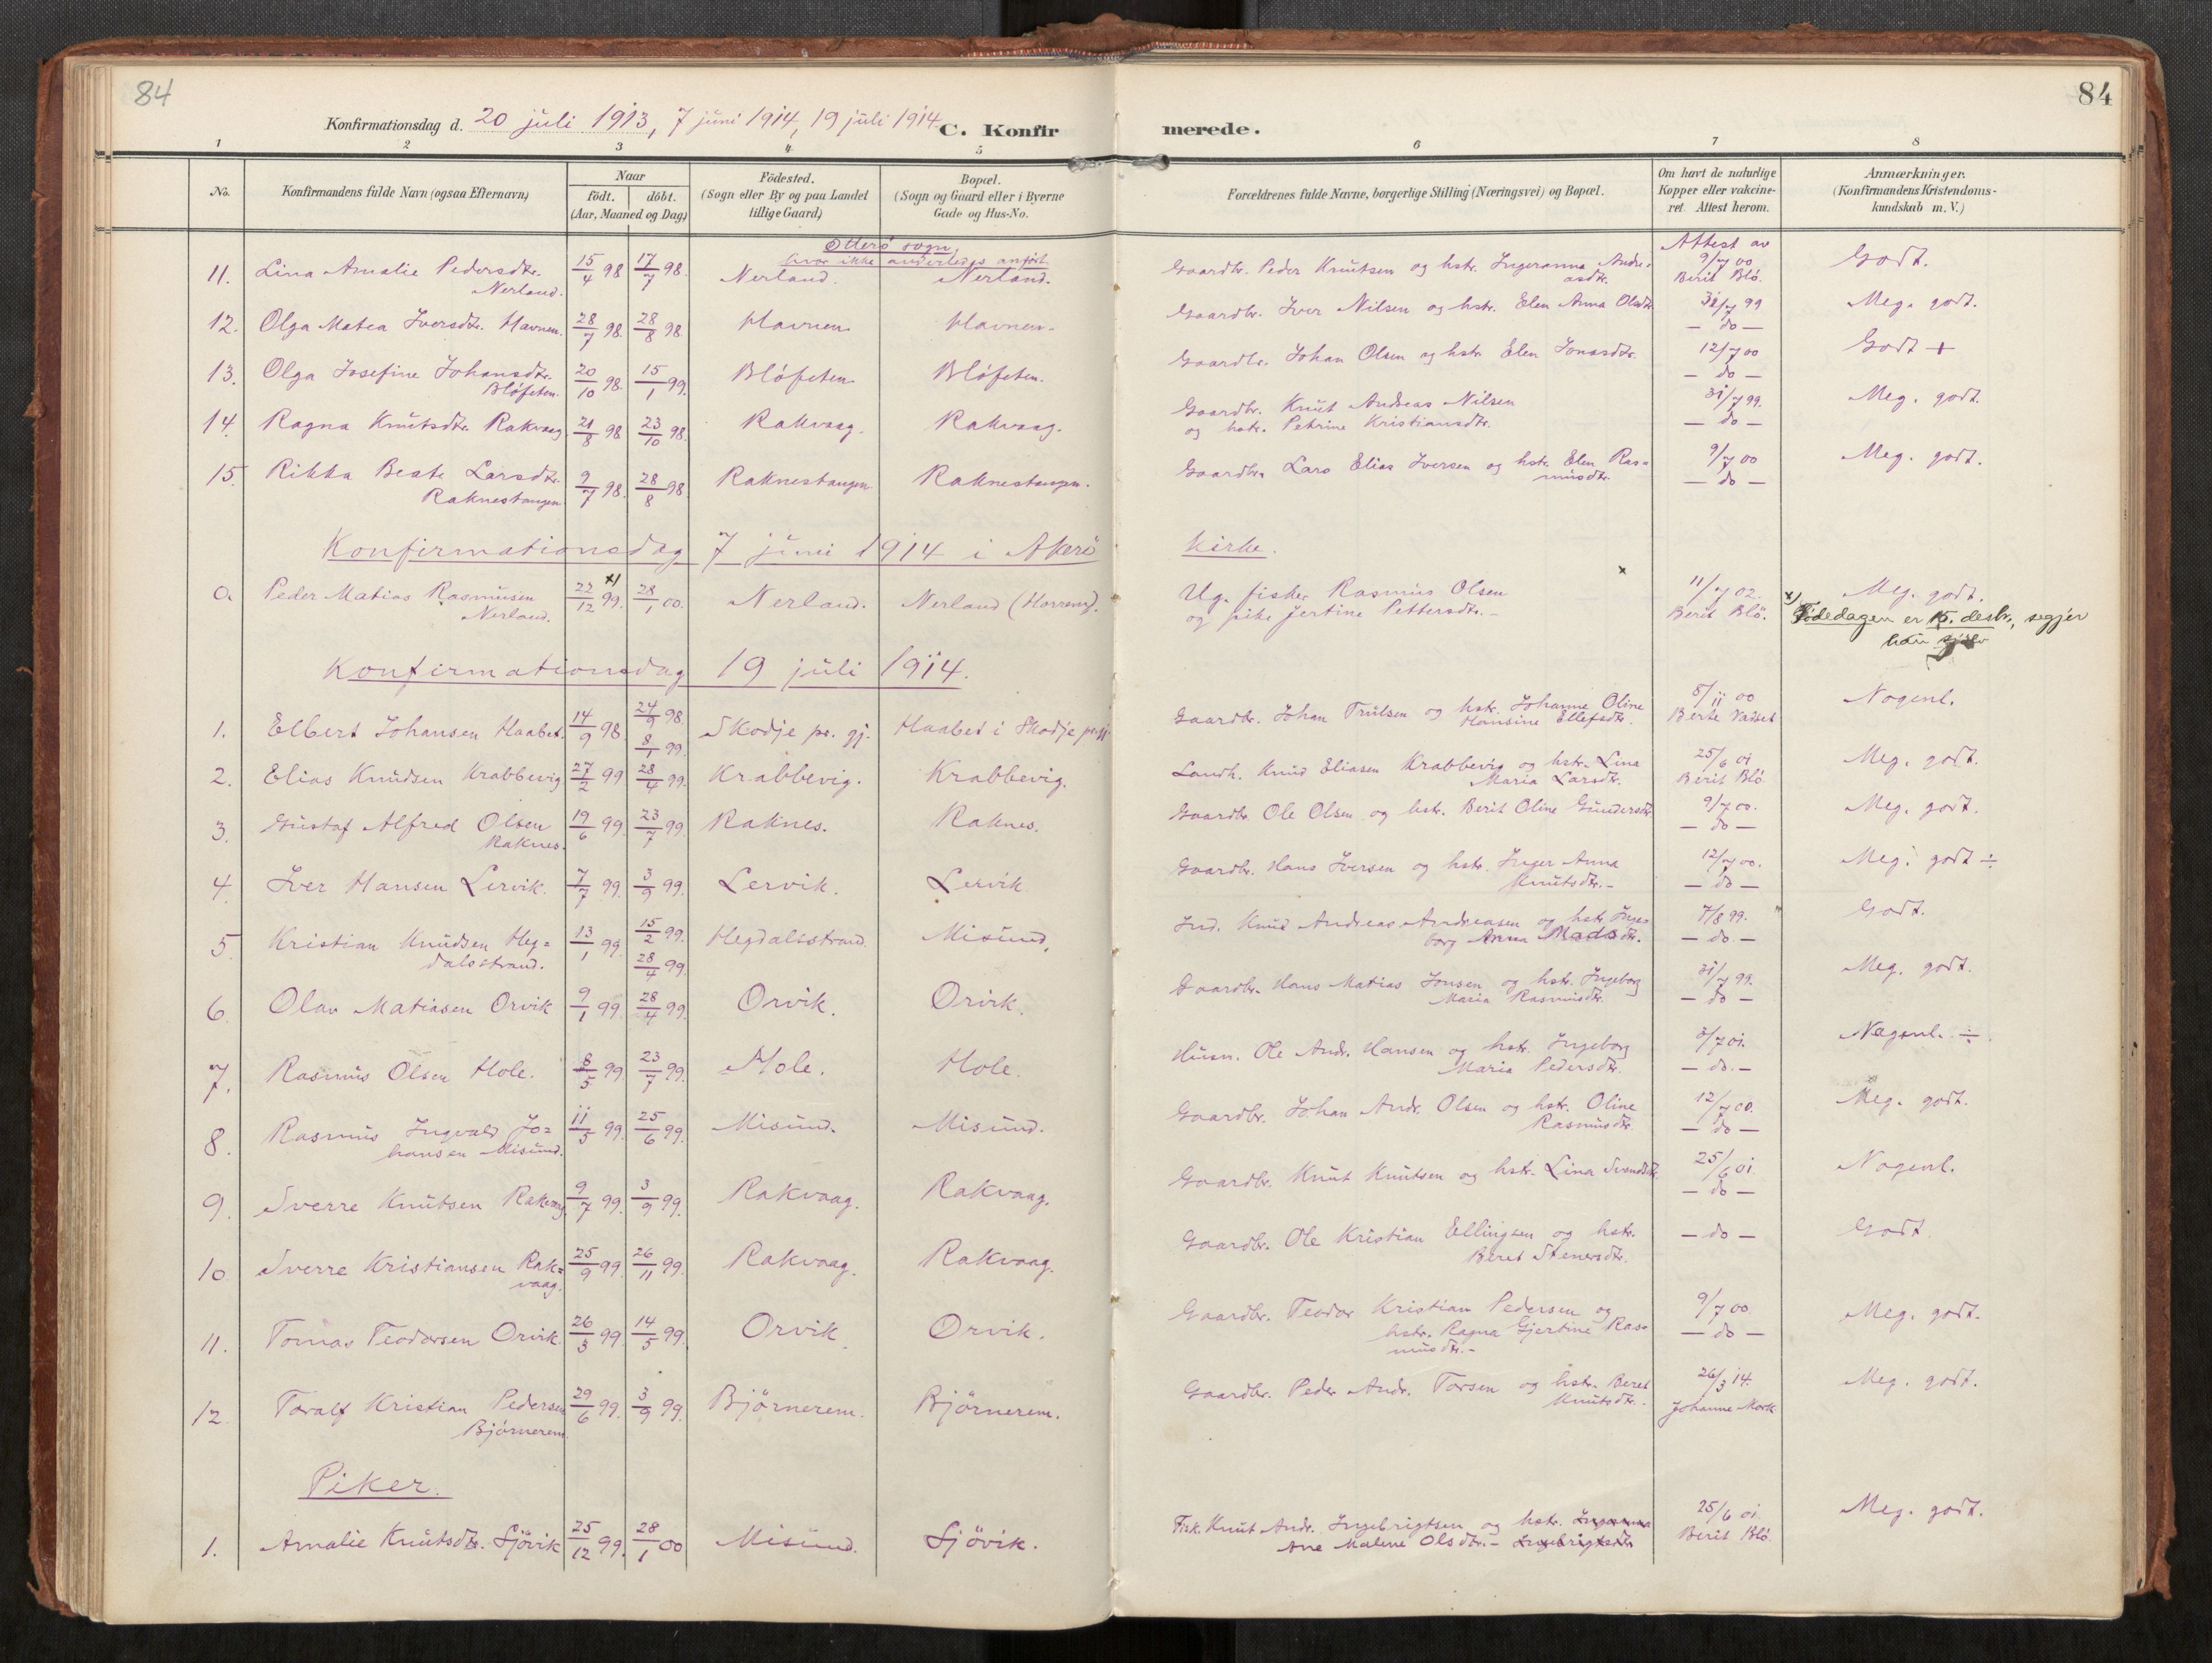 84
84
Konfirmationsdag d. 20 juli 1913, 7 juni 1914, 19 juli 1914.
C. Konfirmerede.
1 2 3 4 5 6 7 8
No.
Konfirmandens fulde Navn (ogsaa Efternavn)
Naar
födt. döbt.
(Aar, Maaned og Dag)
Födested.
(Sogn eller By og paa Landet
tillige Gaard)
Bopæl.
(Sogn og Gaard eller i Byerne
Gade og Hus-No.
Forældrenes fulde Navne, borgerlige Stilling (Næringsvei) og Bopæl.
Om havt de naturlige
Kopper eller vakcine-
ret. Attest herom.
Anmærkninger.
(Konfirmandens Kristendoms-
kundskab m. V.)
Otterö sogn,
hvor ikke anderledes anfört.
Attest av
11. Lina Amalie Pedersdtr. Nerland. 15/4 98 17/7 98. Nerland. Nerland. Gaardbr. Peder Knutsen og hstr. Ingeranna Andreasdtr. 9/7 00 Berit Blö. Godt.
12. Olga Matea Iversdtr. Havnen. 28/7 98. 28/8 98. Havnen. Havnen. Gaardbr. Iver Nilsen og hstr. Elen Anna Olsdtr. 31/7 99 — do — Meg. godt.
13. Olga Josefine Johansdtr. Blöfeten. 20/10 98. 15/1 99. Blöfeten. Blöfeten. Gaardbr. Johan Olsen og hstr. Elen Jonasdtr. 12/7 00 — do — Godt +
14. Ragna Knutsdtr. Rakvaag 21/8 98 23/10 98. Rakvaag. Rakvaag. Gaardbr. Knut Andreas Nilsen
og hstr. Petrine Kristiansdtr. 31/7 99. — do — Meg. godt.
15. Rikka Beate Larsdtr. Raknestangen 9/7 98. 28/8 98. Raknestangen. Raknestangen. Gaardbr. Lars Elias Iversen og hstr. Elen Ras=
musdtr. 9/7 00 — do — Meg. godt.
Konfirmationsdag 7 juni 1914 i Akerö kirke.
0. Peder Matias Rasmusen Nerland. 22/12 99. x) 28/1 00. Nerland. Nerland (Harrem). Ug. fisker Rasmus Olsen
og pike Jertine Pettersdtr. - x 11/7 02. Berit Blö. Meg. godt.
x) Födedagen er 15. desbr., segjer
han sjölv
Konfirmationsdag 19 juli 1914.
1. Elbert Johansen Haabet. 14/9 98. 24/9 98. 8/1 99. Skodje pr. gj. Haabet i Skodje pr.gj. Gaardbr. Johan Trulsen og hstr. Johanne Oline
Hansine Ellefsdtr. 8/11 00 Berte Vadset Nogenl.
2. Elias Knudsen Krabbevig 27/2 99 28/4 99. Krabbevig. Krabbevig. Landh. Knud Eliasen Krabbevig og hstr. Line
Maria Larsdtr. 25/6 01 Berit Blö Meg. godt.
3. Gustaf Alfred Olsen Raknes. 19/6 99. 23/7 99. Raknes. Raknes. Gaardbr. Ole Olsen og hstr. Berit Oline Gundersdtr. 9/7 00. — do — Meg. godt.
4. Iver Hansen Lervik. 7/7 99. 3/9 99. Lervik. Lervik Gaardbr. Hans Iversen og hstr. Inger Anna
Knutsdtr. - 12/7 00. — do — Meg. godt ÷
5. Kristian Knudsen Heg=
dalsstrand. 13/1 99. 15/2 99. 28/4 99. Hegdalsstrand. Misund. Ind. Knud Andreas Andreasen og hstr. Inge=
borg Anna Madsdtr. 7/8 99. — do. — Godt.
6. Olav Matiasen Orvik 9/1 99 28/4 99. Orvik. Orvik. Gaardbr. Hans Matias Jonsen og hstr. Ingeborg
Maria Rasmusdtr. 31/7 99. — do — Meg. godt.
7. Rasmus Olsen Hole. 8/5 99 23/7 99. Hole. Hole. Husm. Ole Andr. Hansen og hstr. Ingeborg
Maria Pedersdtr. 3/7 01. — do. — Nogenl. ÷
8. Rasmus Ingvald Jo=
hansen Misund. 11/5 99. 25/6 99. Misund. Misund. Gaardbr. Johan Andr. Olsen og hstr. Oline
Rasmusdtr. 12/7 00. — do — Meg. godt.
9. Sverre Knutsen Rakvaag 9/7 99. 3/9 99. Rakvaag. Rakvaag. Gaardbr. Knut Knutsen og hstr. Lina Svendsdtr. 25/6 01 — do — Nogenl.
10 Sverre Kristiansen Rak=
vaag. 25/9 99. 26/11 99. Rakvaag. Rakvaag. Gaardbr. Ole Kristian Ellingsen og hstr.
Beret Stenersdtr. — do — Godt.
11. Tomas Teodorsen Orvik. 26/3 99 14/5 99. Orvik. Orvik. Gaardbr. Teodor Kristian Pedersen og
hstr. Ragna Gjertine Ras=
musdtr. - 9/7 00 — do — Meg. godt.
12. Toralf Kristian Pedersen
Björnerem. 29/6 99. 3/9 99. Björnerem. Björnerem. Gaardbr. Peder Andr. Torsen og hstr. Beret
Knutsdtr. - 26/3 14. Johanne Mork Meg. godt.
Piker.
1. Amalie Knutsdtr. Sjövik 25/12 99. 28/1 00 Misund. Sjövik. Fisk. Knut Andr. Ingebrigtsen og hstr.
Ane Malene Olsdtr. - Ingebrigtsdtr. 25/6 01. Berit Blö. Meg. godt.